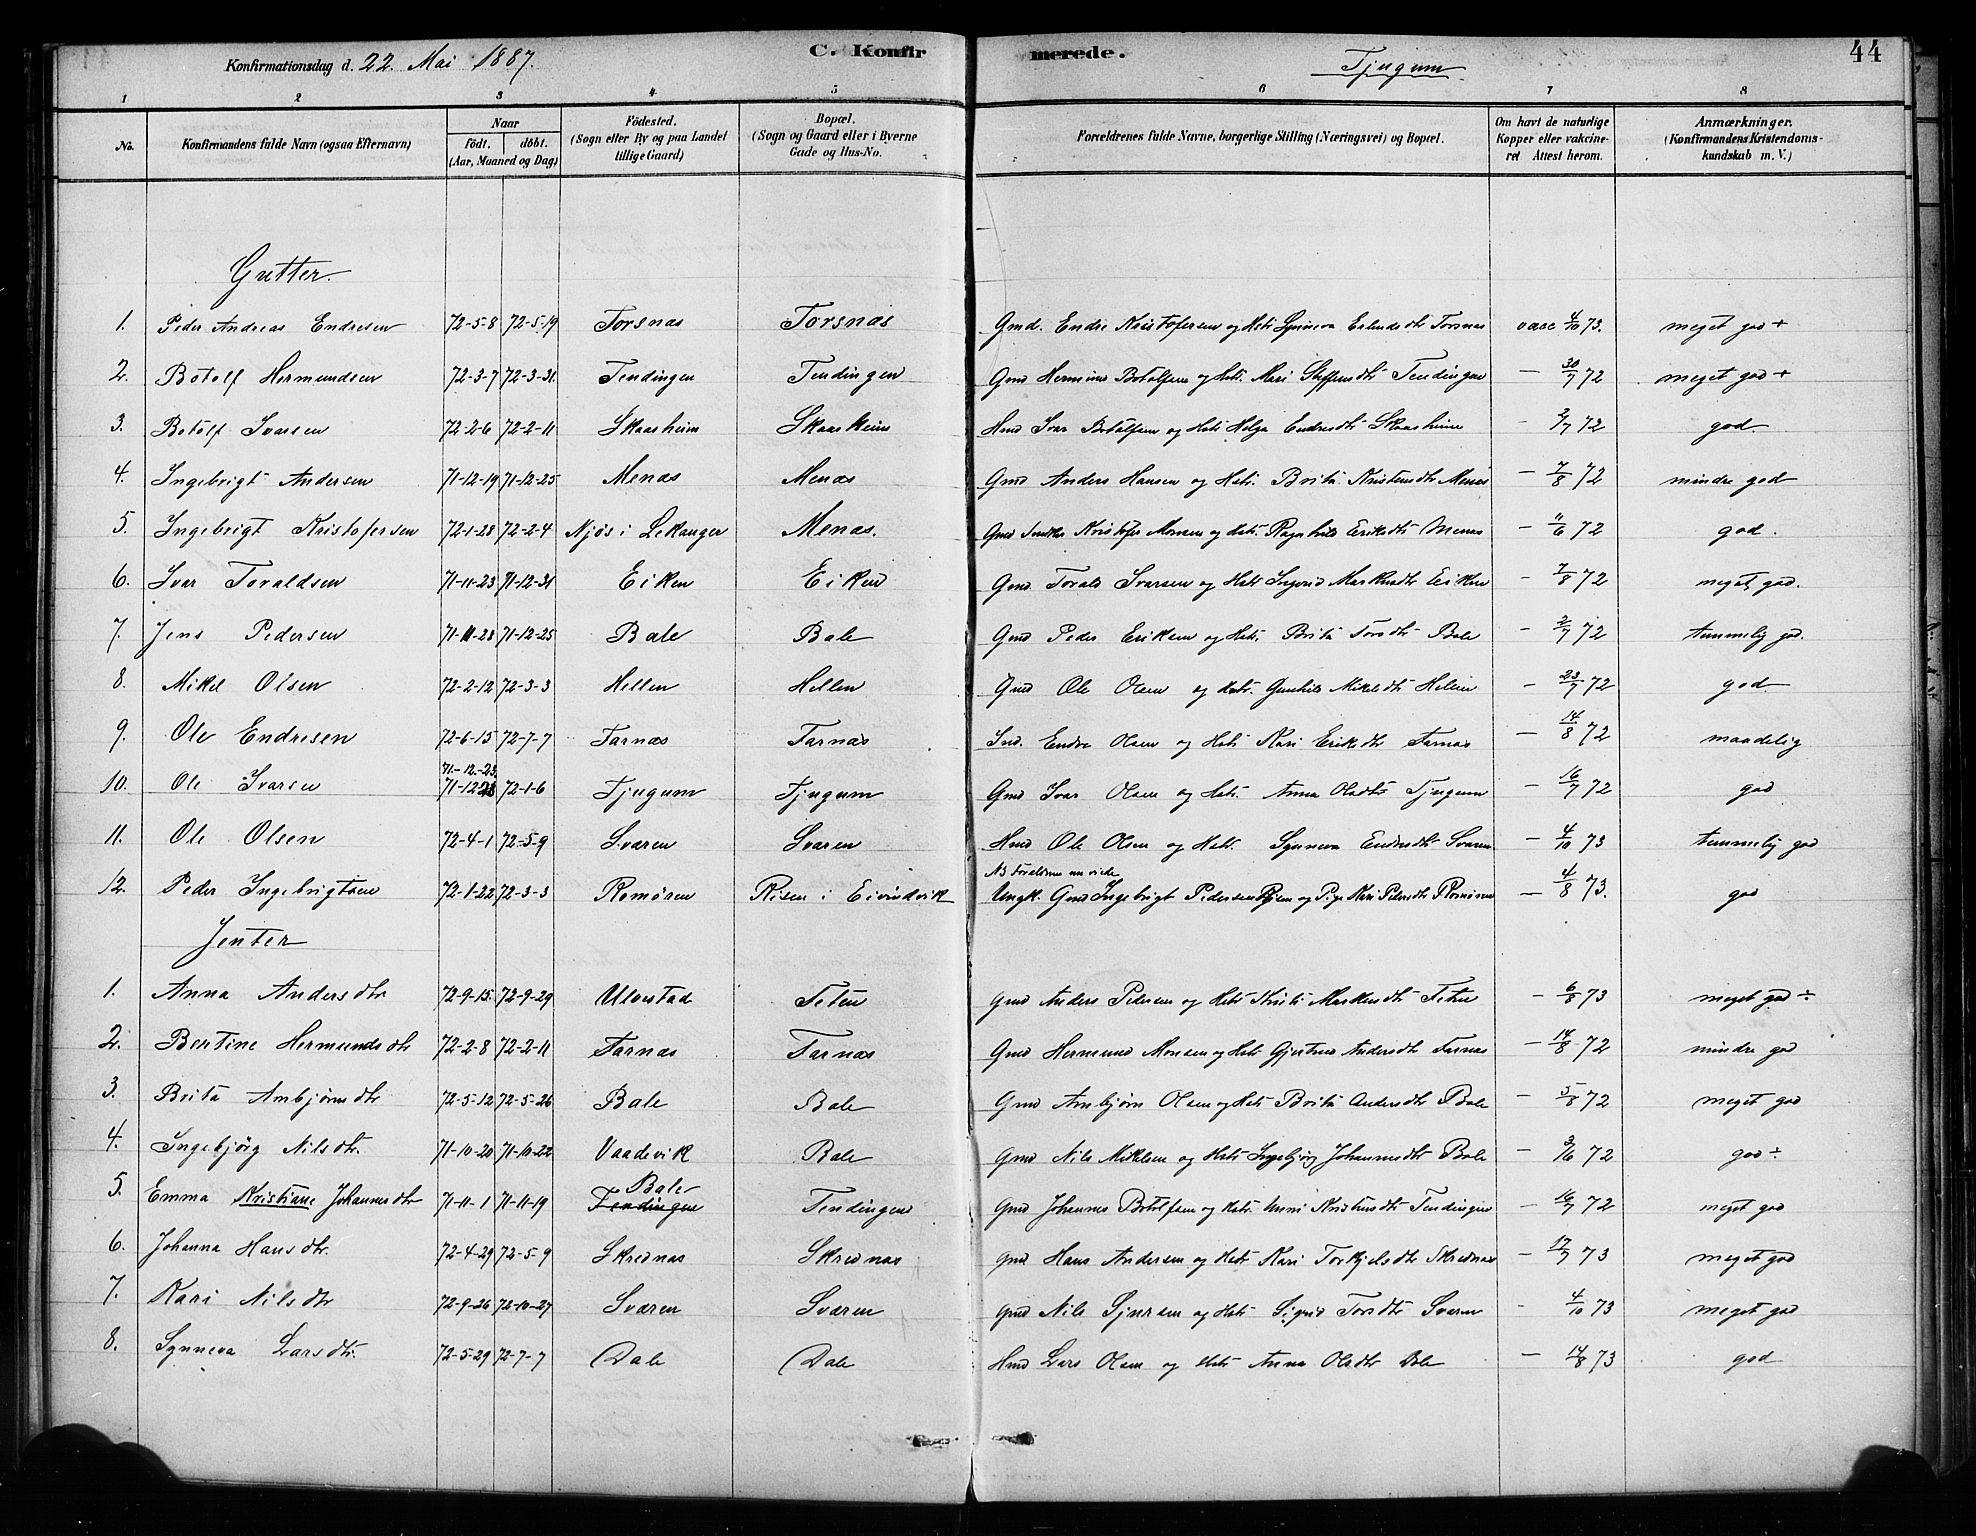 Konfirmationsdag d. 22. Mai 1887. C. Konfirmerede. Tjugum 44
1 2 3 4 5 6 7 8
No. Konfirmandens fulde Navn (ogsaa Efternavn) Naar födt. döbt. (Aar, Maaned og Dag) Födested. (Sogn eller By og paa Landet tillige Gaard) Bopæl. (Sogn og Gaard eller i Byerne Gade og Hus-No. Forældrenes fulde Navne, borgerlige Stilling (Næringsvei) og Bopæl. Om havt de naturlige Kopper eller vakcineret Attest herom. Anmærkninger. (Konfirmandens Kristendomskundskab m. V.)
Gutter.
1. Peder Andreas Endresen 72-5-8 72-5-19 Torsnæs Torsnæs Gmd. Endre Kristofersen og Hst. Synneva Erlendsdtr Torsnæs vacc 4/10 73. meget god +
2. Botolf Hermundsen 72-3-7 72-3-31 Tendingen Tendingen Gmd Hermund Botolfsen og Hst. Mari Steffensdtr Tendingen — 30/7 72 meget god +
3. Botolf Ivarsen 72-2-6 72-2-11 Skaasheim Skaasheim Hmd Ivar Botolfsen og Hst. Helga Endresdtr Skaasheim - 2/7 72 god.
4. Ingebrigt Andersen 71-12-19 71-12-25 Menæs Menæs Gmd Anders Hansen og Hst. Brita Kristensdtr Menæs — 7/8 72 mindre god
5. Ingebrigt Kristofersen 72-1-28 72-2-4 Njøs i Lekanger Menæs. Gmd Kristofer Monsen og Hst. Ragnhild Eriksdtr Menæs — 11/6 72 god.
6. Ivar Toraldsen 71-11-23 71-12-31 Eiken Eiken Gmd Torald Ivarsen og Hst Ingerid Markusdtr Eiken — 7/8 72 meget god.
7. Jens Pedersen 71-11-28 71-12-25 Bale Bale Gmd Peder Eriksen og Hst. Brita Torsdtr Bale — 2/7 72 temmelig god.
8. Mikel Olsen 72-2-12 72-3-3 Hellen Hellen Gmd Ole Olsen og Hst. Gunhild Mikelsdtr Hellen — 23/7 72 god
9. Ole Endresen 72-6-15 72-7-7 Farnæs Farnæs Ind. Endre Olsen og Hst. Kari Eriksdtr Farnæs — 14/8 72 maadelig
71-12-23.
10. Ole Ivarsen 71-12-28 72-1-6 Tjugum Tjugum Gmd Ivar Olsen og Hst. Anna Olsdtr Tjugum — 16/7 72 god
11. Ole Olsen 72-4-1 72-5-9 Sværen Sværen Hmd Ole Olsen og Hst. Synneva Endresdtr Sværen — 4/10 73 temmelig god
NB Forældrene nu viede
12. Peder Ingebrigtsen 72-1-22 72-3-3 Romøren Risen i Eivindvik Ungk. Gmd Ingebrigt Pedersen Risen og Pige Kari Pedersdtr Romøren — 4/8 73. god
Jenter
1. Anna Andersdtr 72-9-15. 72-9-29 Ulvestad Feten Gmd Anders Pedersen og Hst. Kristi Markusdtr Feten — 6/8 73 meget god ÷
2. Bertine Hermundsdtr 72-2-8 72-2-11 Farnæs Farnæs Gmd Hermund Monsen og Hst. Gjertrud Andersdtr Farnæs — 14/8 72 mindre god
3. Brita Ambjørnsdtr 72-5-12 72-5-26 Bale Bale Gmd Ambjørn Olsen og Hst. Brita Andersdtr Bale — 5/8 72 meget god
4. Ingebjörg Nilsdtr. 71-10-20 71-10-22 Vaadevik Bale Gmd Nils Mikelsen og Hst. Ingebjörg Johannesdtr Bale — 3/6 72 god ÷
5. Emma Kristiane Johannesdtr 71-11-1 71-11-19 Bale Tendingen Tendingen Gmd Johannes Botolfsen og Hst. Unni Kristensdtr Tendingen — 16/7 72 meget god
6. Johanna Hansdtr. 72-4-29 72-5-9 Skrednæs Skrednæs Gmd Hans Andersen og Hst. Kari Torkjelsdtr Skrednæs — 17/7 73 meget god
7. Kari Nilsdtr 72-9-26 72-10-27 Sværen Sværen Gmd Nils Sjursen og Hst. Sigrid Torsdtr Sværen - 4/10 73 meget god
8. Synneva Larsdtr. 72-5-29 72-7-7 Dale Dale Hmd Lars Olsen og Hst. Anna Olsdtr Dale — 14/8 73 god